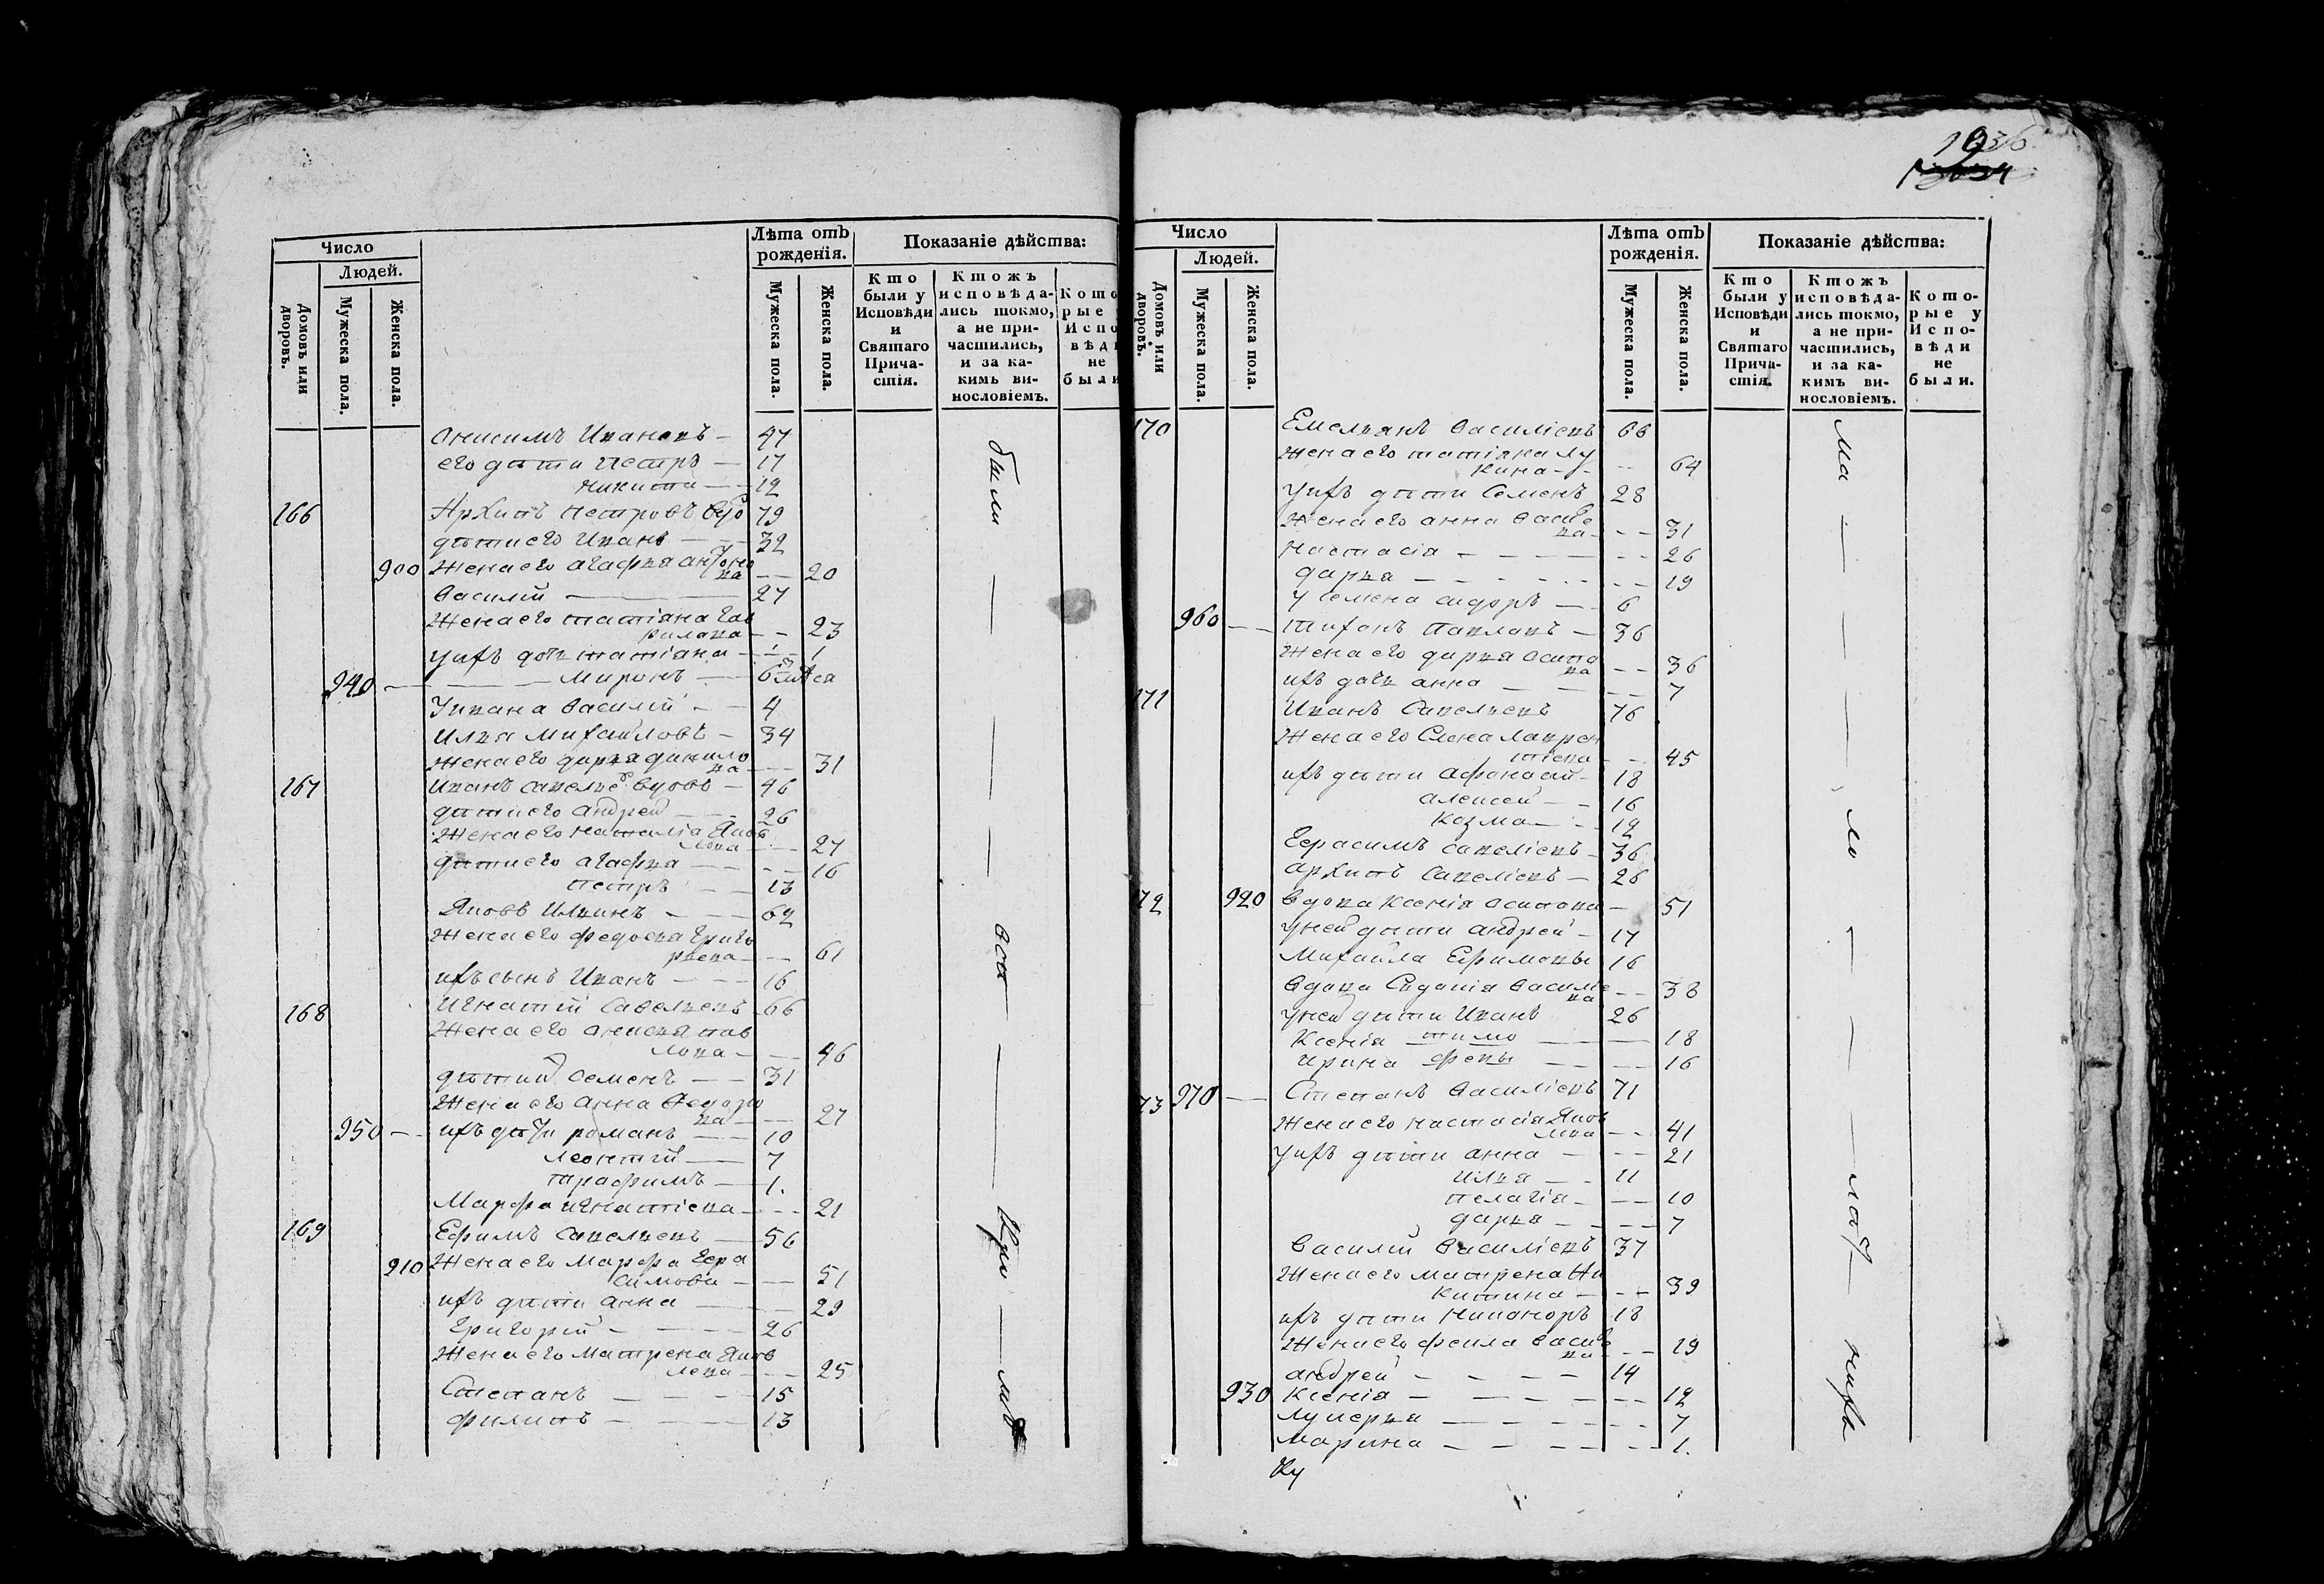 Число
Людей.
Домовъ или дворовъ.
Мужеска пола.
Женска пола.
Лѣта отъ рожденія.
Мужеска пола.
Женска пола.
Показаніе дѣйства:
Кто были у Исповѣди и Святаго Причастія.
Ктожъ исповѣдались токмо, а не причастились, и за какимъ винословіемъ.
Кото рые Испо вѣди не были
Онисимъ Ивановъ — 47
его дѣти Петръ — 17
Никита — 12
166 Архипъ Петровъ вдо 79
дѣти его Иванъ — 32
900 Жена его Агафья Антоно
ва — 20
Василій — 27
Жена его Татіана Гав
рилова — 23
у ихъ дочь Татіана — 1
940 — Миронъ — 6 мѣся
У Ивана Василій — 4
Илья Михайловъ — 34
Жена его Дарья Данило
ва — 31
167 Иванъ Савелье вдовъ — 46
дѣти его Андрей — 26
Жена его Наталія Яков
лева — 27
дѣти его Агафья — 16
Петръ — 13
Яковъ Ильинъ — 62
Жена его Федосья Григо
рьева — 61
ихъ сынъ Иванъ — 16
168 Игнатій Савельевъ — 66
Жена его Анисья Пав
лова — 46
дѣти и Семенъ — 31
Жена его Анна Федоро
ва — 27
950 — ихъ дѣти Романъ — 10
Леонтій — 7
Трафимъ — 1.
Марфа Игнатіева — 21
169 Ефимъ Савельевъ — 56
910 Жена его Марфа Гера
симова — 51
ихъ дѣти Анна — 29
Григорій — 26
Жена его Матрена Яков
лева — 25
Степанъ — 15
Филипъ — 13
были — — — — вса — — — Кри — мѣ
1036
Число
Людей.
Домовъ или дворовъ.
Мужеска пола.
Женска пола.
Лѣта отъ рожденія.
Мужеска пола.
Женска пола.
Показаніе дѣйства:
Кто были у Исповѣди и Святаго Причастія.
Ктожъ исповѣдались токмо, а не причастились, и за какимъ винословіемъ.
Которые у Исповѣди не были.
170 Емельянъ Василіевъ 66
Жена его Татіяна Лу
кина — 64
у ихъ дѣти Семенъ 28
Жена его Анна Василье
ва — 31
Настасія — 26
Дарья — 19
у Семена Сидоръ — 6
960 — Тихонъ Павловъ — 36
Жена его Дарья Осипо
ва — 36
ихъ дочь Анна — 7
171 Иванъ Савельевъ 76
Жена его Елена Лаврен
тіева — 45
ихъ дѣти Афонасій — 18
Алексей — 16
Козма — 12
Герасимъ Савеліевъ — 36
Архипъ Савеліевъ — 26
172 920 Вдова Ксенія Осипова — 51
у ней дѣти Андрей — 17
Михайла Ефимовы 16
Вдова Евдокія Василіе
ва — 38
у ней дѣти Иванъ 26
Ксенія тимо — 18
Ирина феевы — 16
73 970 — Степанъ Василіевъ 71
Жена его Настасія Яков
лева — 41
у ихъ дѣти Анна — 21
Илья — 11
Пелагія — 10
Дарья — 7
Василій Василіевъ 37
Жена его Матрена Ни
китина — 39
ихъ дѣти Никаноръ 18
Жена его Фекла Василье
ва — 19
Андрей — 14
930 Ксенія — 12
Лукерья — 7
Марина — 1.
ма — — — — ло — — — лот — нихъ
Ку